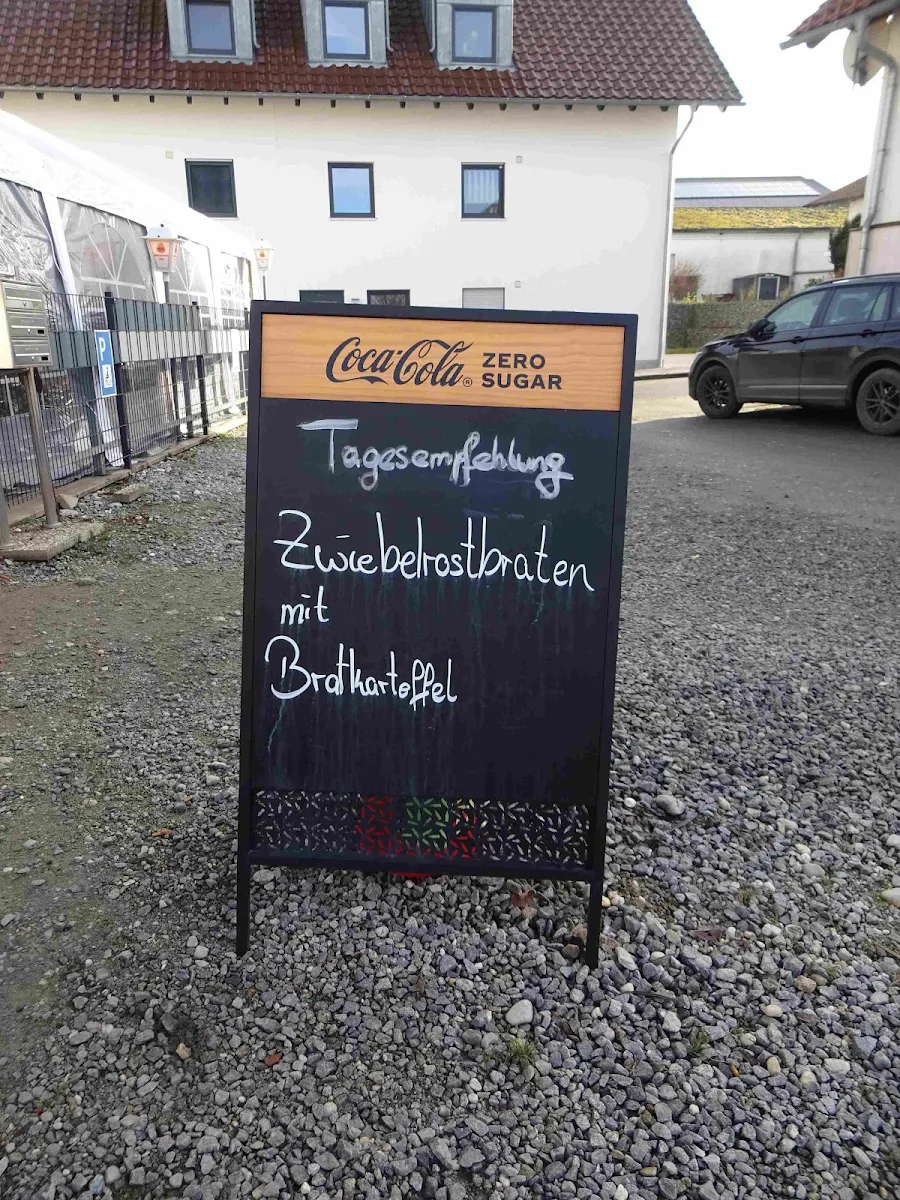 Coca-Cola® ZERO
SUGAR
Tagesempfehlung
Zwiebelrostbraten
mit
Bratkartoffel
P